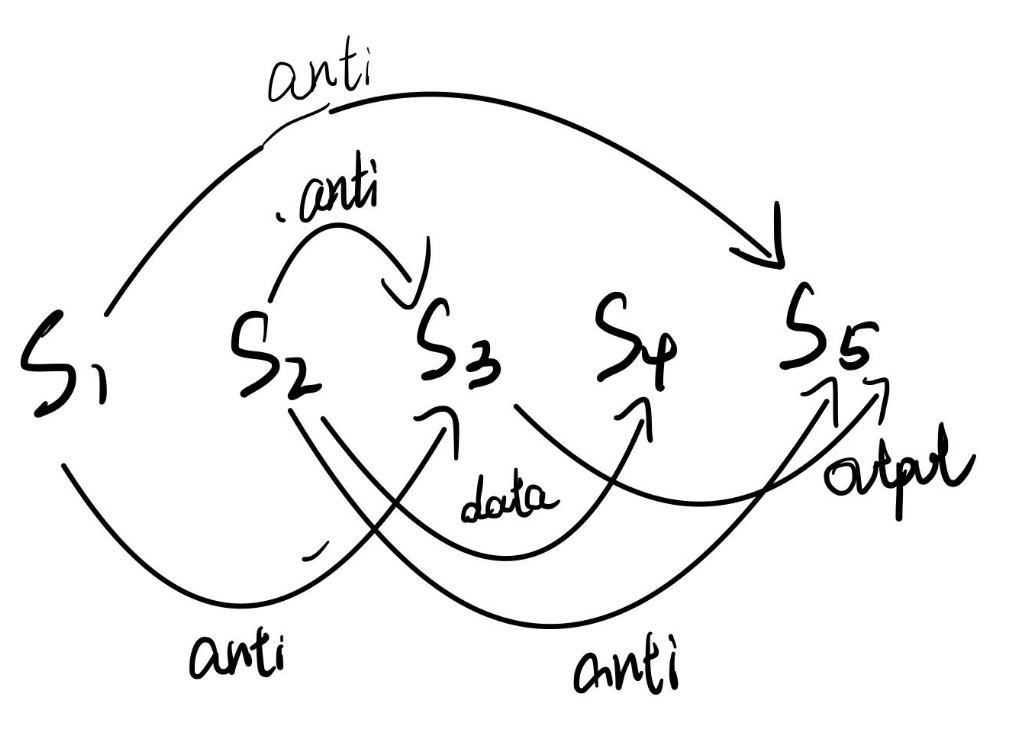 anti
anti
S1 S2 S3 S4 S5
data
output
anti
anti